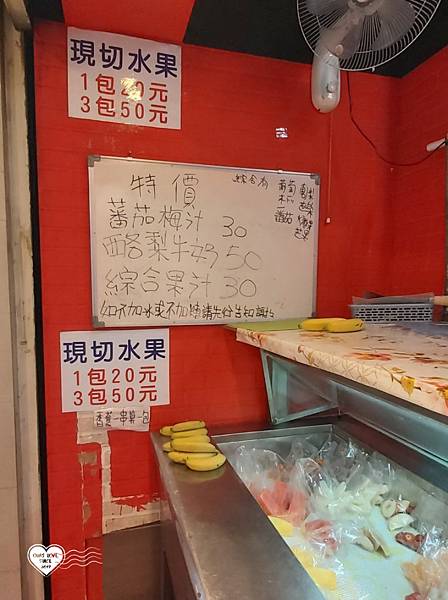 現切水果
1包20元
3包50元
特價
綜合有
蕃茄梅汁 30
酪梨牛奶 50
綜合果汁 30
如不加冰或不加糖請先告知謝
葡萄
蕃茄
現切水果
1包20元
3包50元
香蕉一串算一包